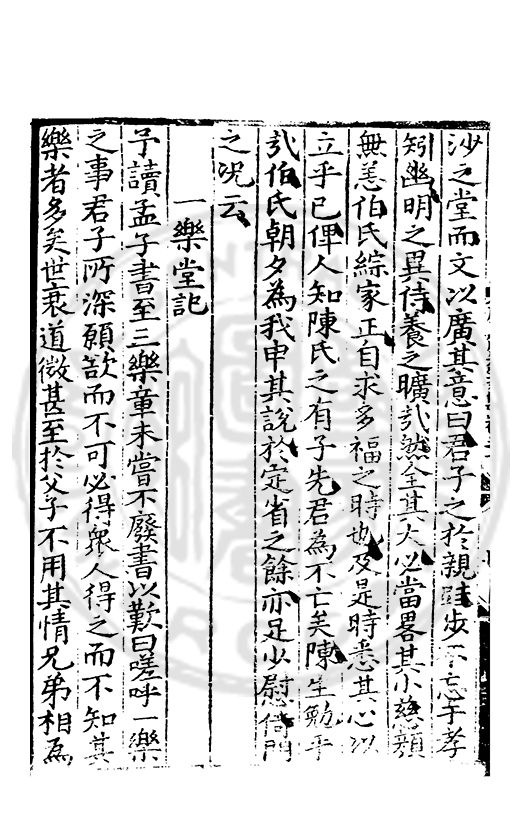 沙之堂而文以廣其意曰君子之於親跬步不忘于孝
矧幽明之異侍養之曠㢤然全其大必當畧其小慈顔
無恙伯氏綜家正自求多福之時也及是時悉其心以
立乎已俾人知陳氏之有子先君為不亡矣陳生勉乎
㢤伯氏朝夕為我申其說於定省之餘亦足少慰倚門
之况云
一樂堂記
予讀孟子書至三樂章未嘗不廢書以歎曰嗟呼一樂
之事君子所深願欲而不可必得衆人得之而不知其
樂者多矣世衰道微甚至於父子不用其情兄弟相為